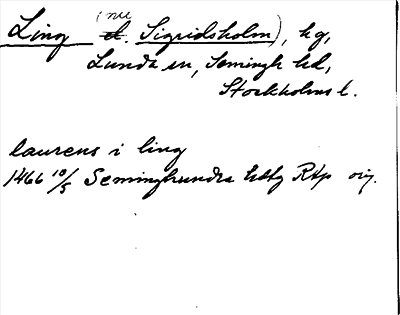 Ling (nu Sigridsholm), hg,
Lunda sn, Seminghundra hd,
Stockholms l.
laurens i ling
1466 10/5 Seminghundra hdtg Rtp orig.